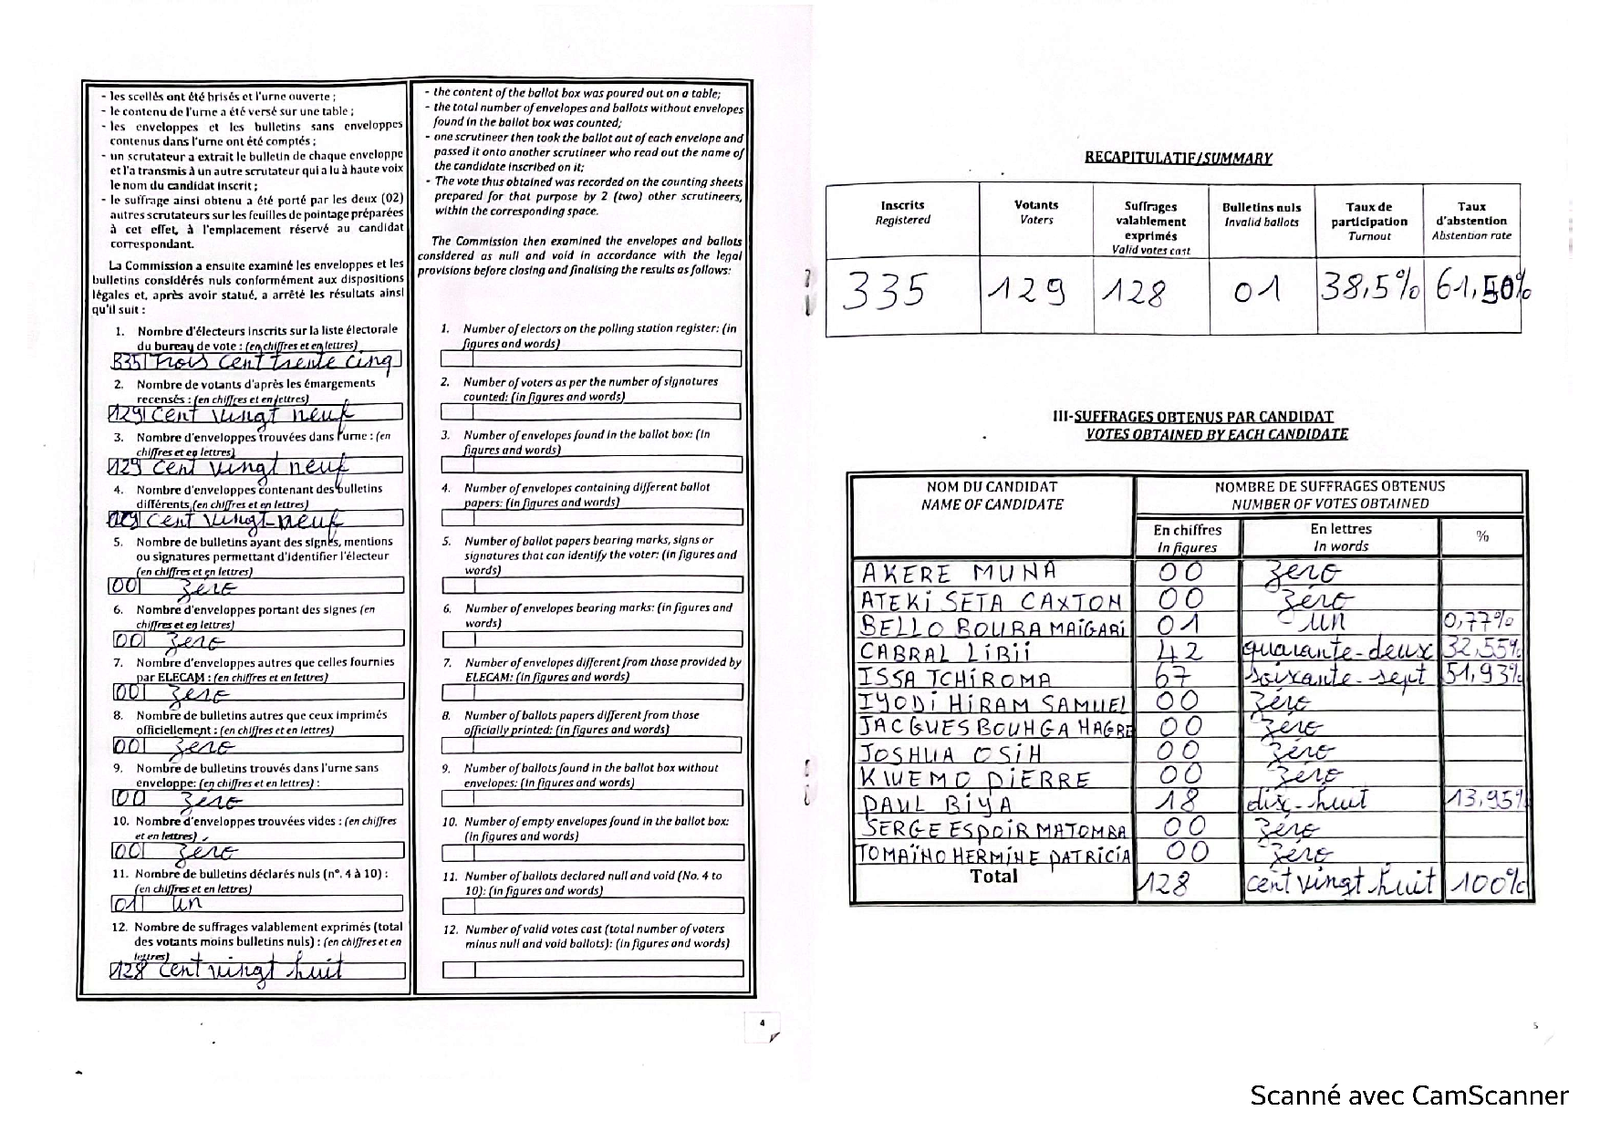 - les scellés ont été brisés et l'urne ouverte ;
- le contenu de l'urne a été versé sur une table ;
- les enveloppes et les bulletins sans enveloppes
contenus dans l'urne ont été comptés ;
- un scrutateur a extrait le bulletin de chaque enveloppe
et l'a transmis à un autre scrutateur qui a lu à haute voix
le nom du candidat inscrit ;
- le suffrage ainsi obtenu a été porté par les deux (02)
autres scrutateurs sur les feuilles de pointage préparées
à cet effet, à l'emplacement réservé au candidat
correspondant.
La Commission a ensuite examiné les enveloppes et les
bulletins considérés nuls conformément aux dispositions
légales et, après avoir statué, a arrêté les résultats ainsi
qu'il suit :
1. Nombre d'électeurs inscrits sur la liste électorale
du bureau de vote : (en chiffres et en lettres)
335 Trois cent trente cinq
2. Nombre de votants d'après les émargements
recensés : (en chiffres et en lettres)
129 cent vingt neuf
3. Nombre d'enveloppes trouvées dans l'urne : (en
chiffres et en lettres)
129 cent vingt neuf
4. Nombre d'enveloppes contenant des bulletins
différents (en chiffres et en lettres)
129 cent vingt-neuf
5. Nombre de bulletins ayant des signes, mentions
ou signatures permettant d'identifier l'électeur
(en chiffres et en lettres)
00 zéro
6. Nombre d'enveloppes portant des signes (en
chiffres et en lettres)
00 zéro
7. Nombre d'enveloppes autres que celles fournies
par ELECAM : (en chiffres et en lettres)
00 zéro
8. Nombre de bulletins autres que ceux imprimés
officiellement : (en chiffres et en lettres)
00 zéro
9. Nombre de bulletins trouvés dans l'urne sans
enveloppe: (en chiffres et en lettres) :
00 zéro
10. Nombre d'enveloppes trouvées vides : (en chiffres
et en lettres)
00 zéro
11. Nombre de bulletins déclarés nuls (n°. 4 à 10) :
(en chiffres et en lettres)
01 un
12. Nombre de suffrages valablement exprimés (total
des votants moins bulletins nuls) : (en chiffres et en
lettres)
128 cent vingt huit
- the content of the ballot box was poured out on a table;
- the total number of envelopes and ballots without envelopes
found in the ballot box was counted;
- one scrutineer then took the ballot out of each envelope and
passed it onto another scrutineer who read out the name of
the candidate inscribed on it;
- The vote thus obtained was recorded on the counting sheets
prepared for that purpose by 2 (two) other scrutineers,
within the corresponding space.
The Commission then examined the envelopes and ballots
considered as null and void in accordance with the legal
provisions before closing and finalising the results as follows:
1. Number of electors on the polling station register: (in
figures and words)
2. Number of voters as per the number of signatures
counted: (in figures and words)
3. Number of envelopes found in the ballot box: (in
figures and words)
4. Number of envelopes containing different ballot
papers: (in figures and words)
5. Number of ballot papers bearing marks, signs or
signatures that can identify the voter: (in figures and
words)
6. Number of envelopes bearing marks: (in figures and
words)
7. Number of envelopes different from those provided by
ELECAM: (in figures and words)
8. Number of ballots papers different from those
officially printed: (in figures and words)
9. Number of ballots found in the ballot box without
envelopes: (in figures and words)
10. Number of empty envelopes found in the ballot box:
(in figures and words)
11. Number of ballots declared null and void (No. 4 to
10): (in figures and words)
12. Number of valid votes cast (total number of voters
minus null and void ballots): (in figures and words)
4
RECAPITULATIF/SUMMARY
Inscrits Registered Votants Voters Suffrages valablement exprimés Valid votes cast Bulletins nuls Invalid ballots Taux de participation Turnout Taux d'abstention Abstention rate
335 129 128 01 38,5% 61,50%
III-SUFFRAGES OBTENUS PAR CANDIDAT
VOTES OBTAINED BY EACH CANDIDATE
NOM DU CANDIDAT NOMBRE DE SUFFRAGES OBTENUS
NAME OF CANDIDATE NUMBER OF VOTES OBTAINED
En chiffres En lettres %
In figures In words
AKERE MUNA 00 zéro
ATEKI SETA CAXTON 00 zéro
BELLO BOUBA MAIGARI 01 un 0,77%
CABRAL LIBII 42 quarante-deux 32,55%
ISSA TCHIROMA 67 soixante-sept 51,93%
IYODI HIRAM SAMUEL 00 zéro
JACQUES BOUHGA HAGBE 00 zéro
JOSHUA OSIH 00 zéro
KWEMO PIERRE 00 zéro
PAUL BIYA 18 dix-huit 13,95%
SERGE ESPOIR MATOMBA 00 zéro
TOMAÏNO HERMINE PATRICIA 00 zéro
Total 128 cent vingt huit 100%
5
Scanné avec CamScanner